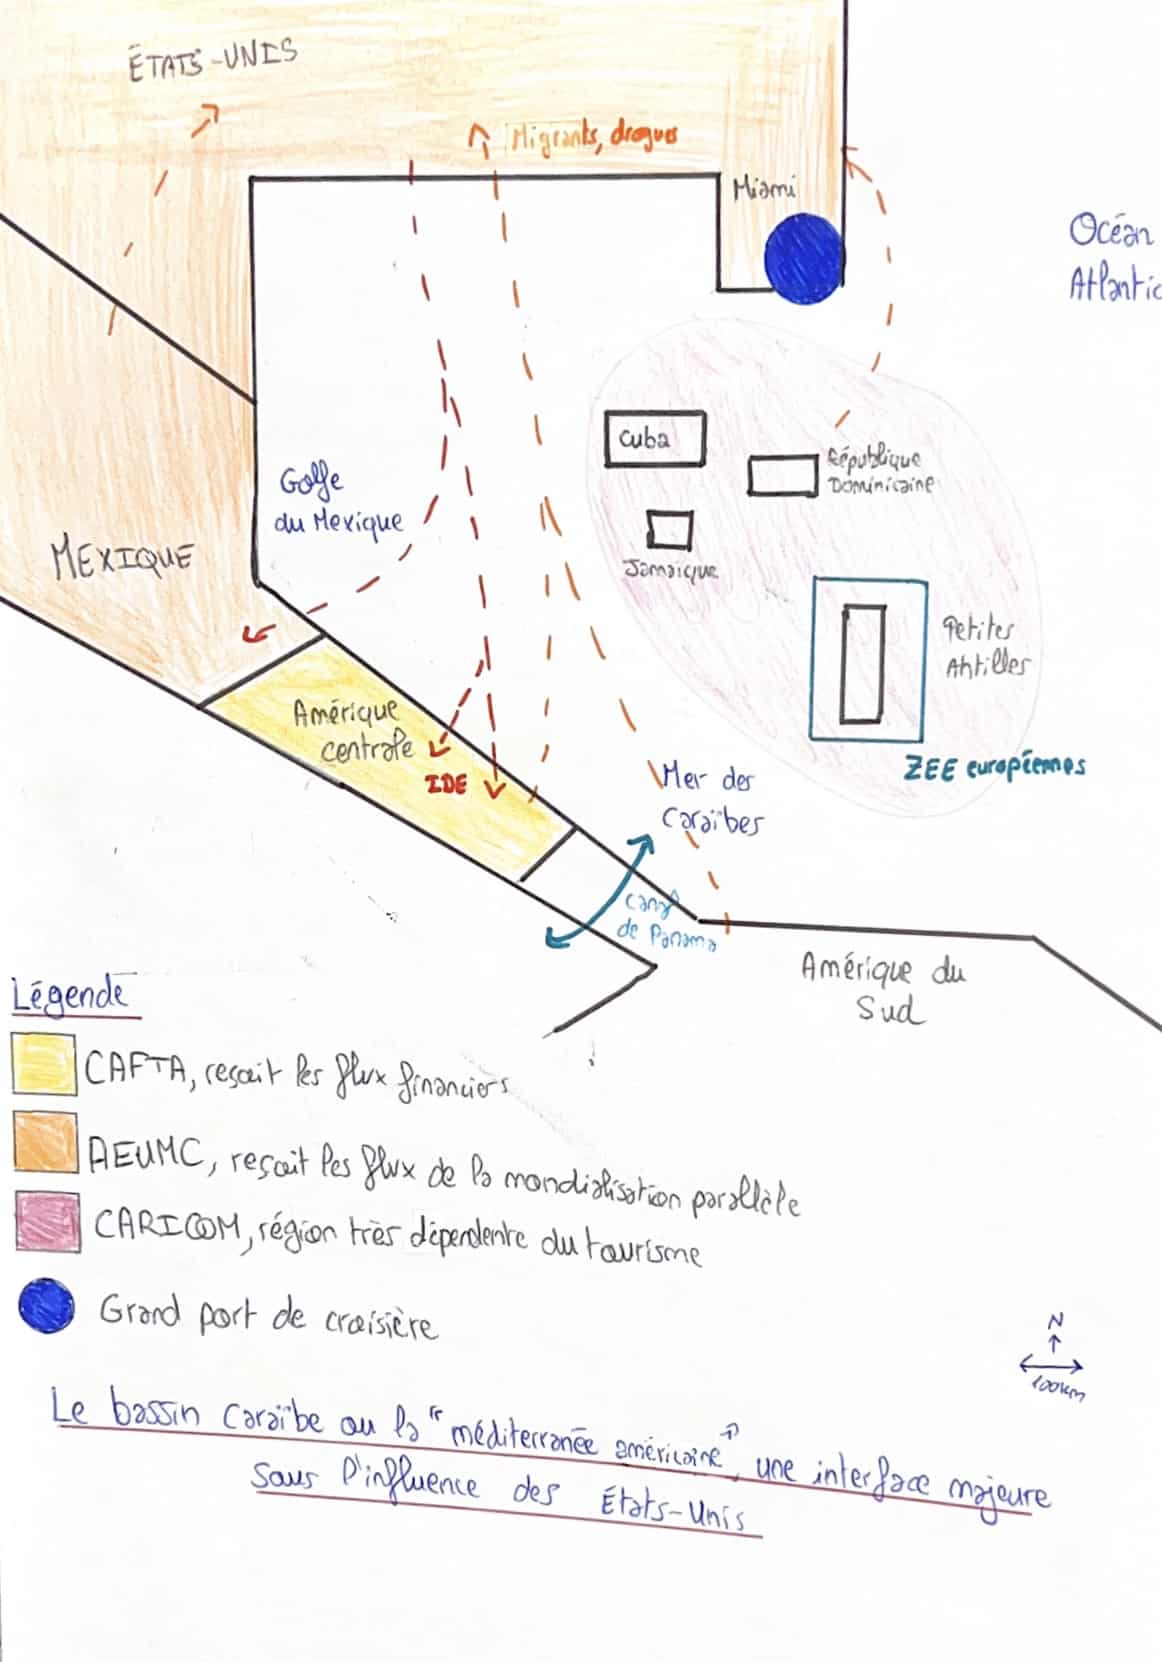 ÉTATS-UNIS
Migrants, drogues
Miami
Océan
Atlantic
Cuba
République
Dominicaine
Golfe
du Mexique
Jamaïque
MEXIQUE
Petites
Antilles
Amérique
centrale
IDE
ZEE européennes
Mer des
Caraïbes
Canal
de Panama
Amérique du
Sud
Légende
CAFTA, reçoit les flux financiers
AEUMC, reçoit les flux de la mondialisation parallèle
CARICOM, région très dépendente du tourisme
Grand port de croisière
N
100km
Le bassin Caraïbe ou la "méditerranée américaine", une interface majeure
sous l'influence des États-Unis